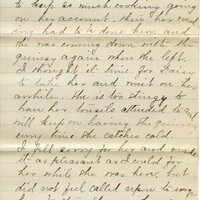 to keep so much cooking going
on her account. Then her sew
ing had to be done here, and
she was coming down with the
quinsy again when she left.
I thought it time for Daisy
to take her and wait on her
awhile. She is too stingy to
have her tonsils attended to and
will keep on having the quinsy
every time she catches cold.
I felt sorry for her and made
it as pleasant as I could for
her while she was here, but
did not feel called upon to